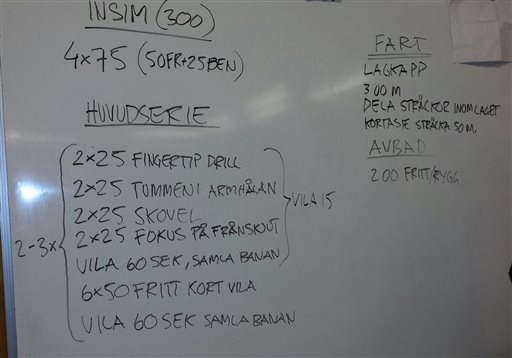 INSIM (300)
4x75 (50FR+25BEN)
HUVUDSERIE
2-3x
2x25 FINGERTIP DRILL
2x25 TUMMEN I ARMHÅLAN
2x25 SKOVEL
2x25 FOKUS PÅ FRÅNSKJUT
VILA 60 SEK, SAMLA BANAN
VILA 15
6x50 FRITT KORT VILA
VILA 60 SEK SAMLA BANAN
FART
LAGKAPP
300 M
DELA STRÄCKOR INOM LAGET
KORTASTE STRÄCKA 50 M.
AVBAD
200 FRITT/RYGG